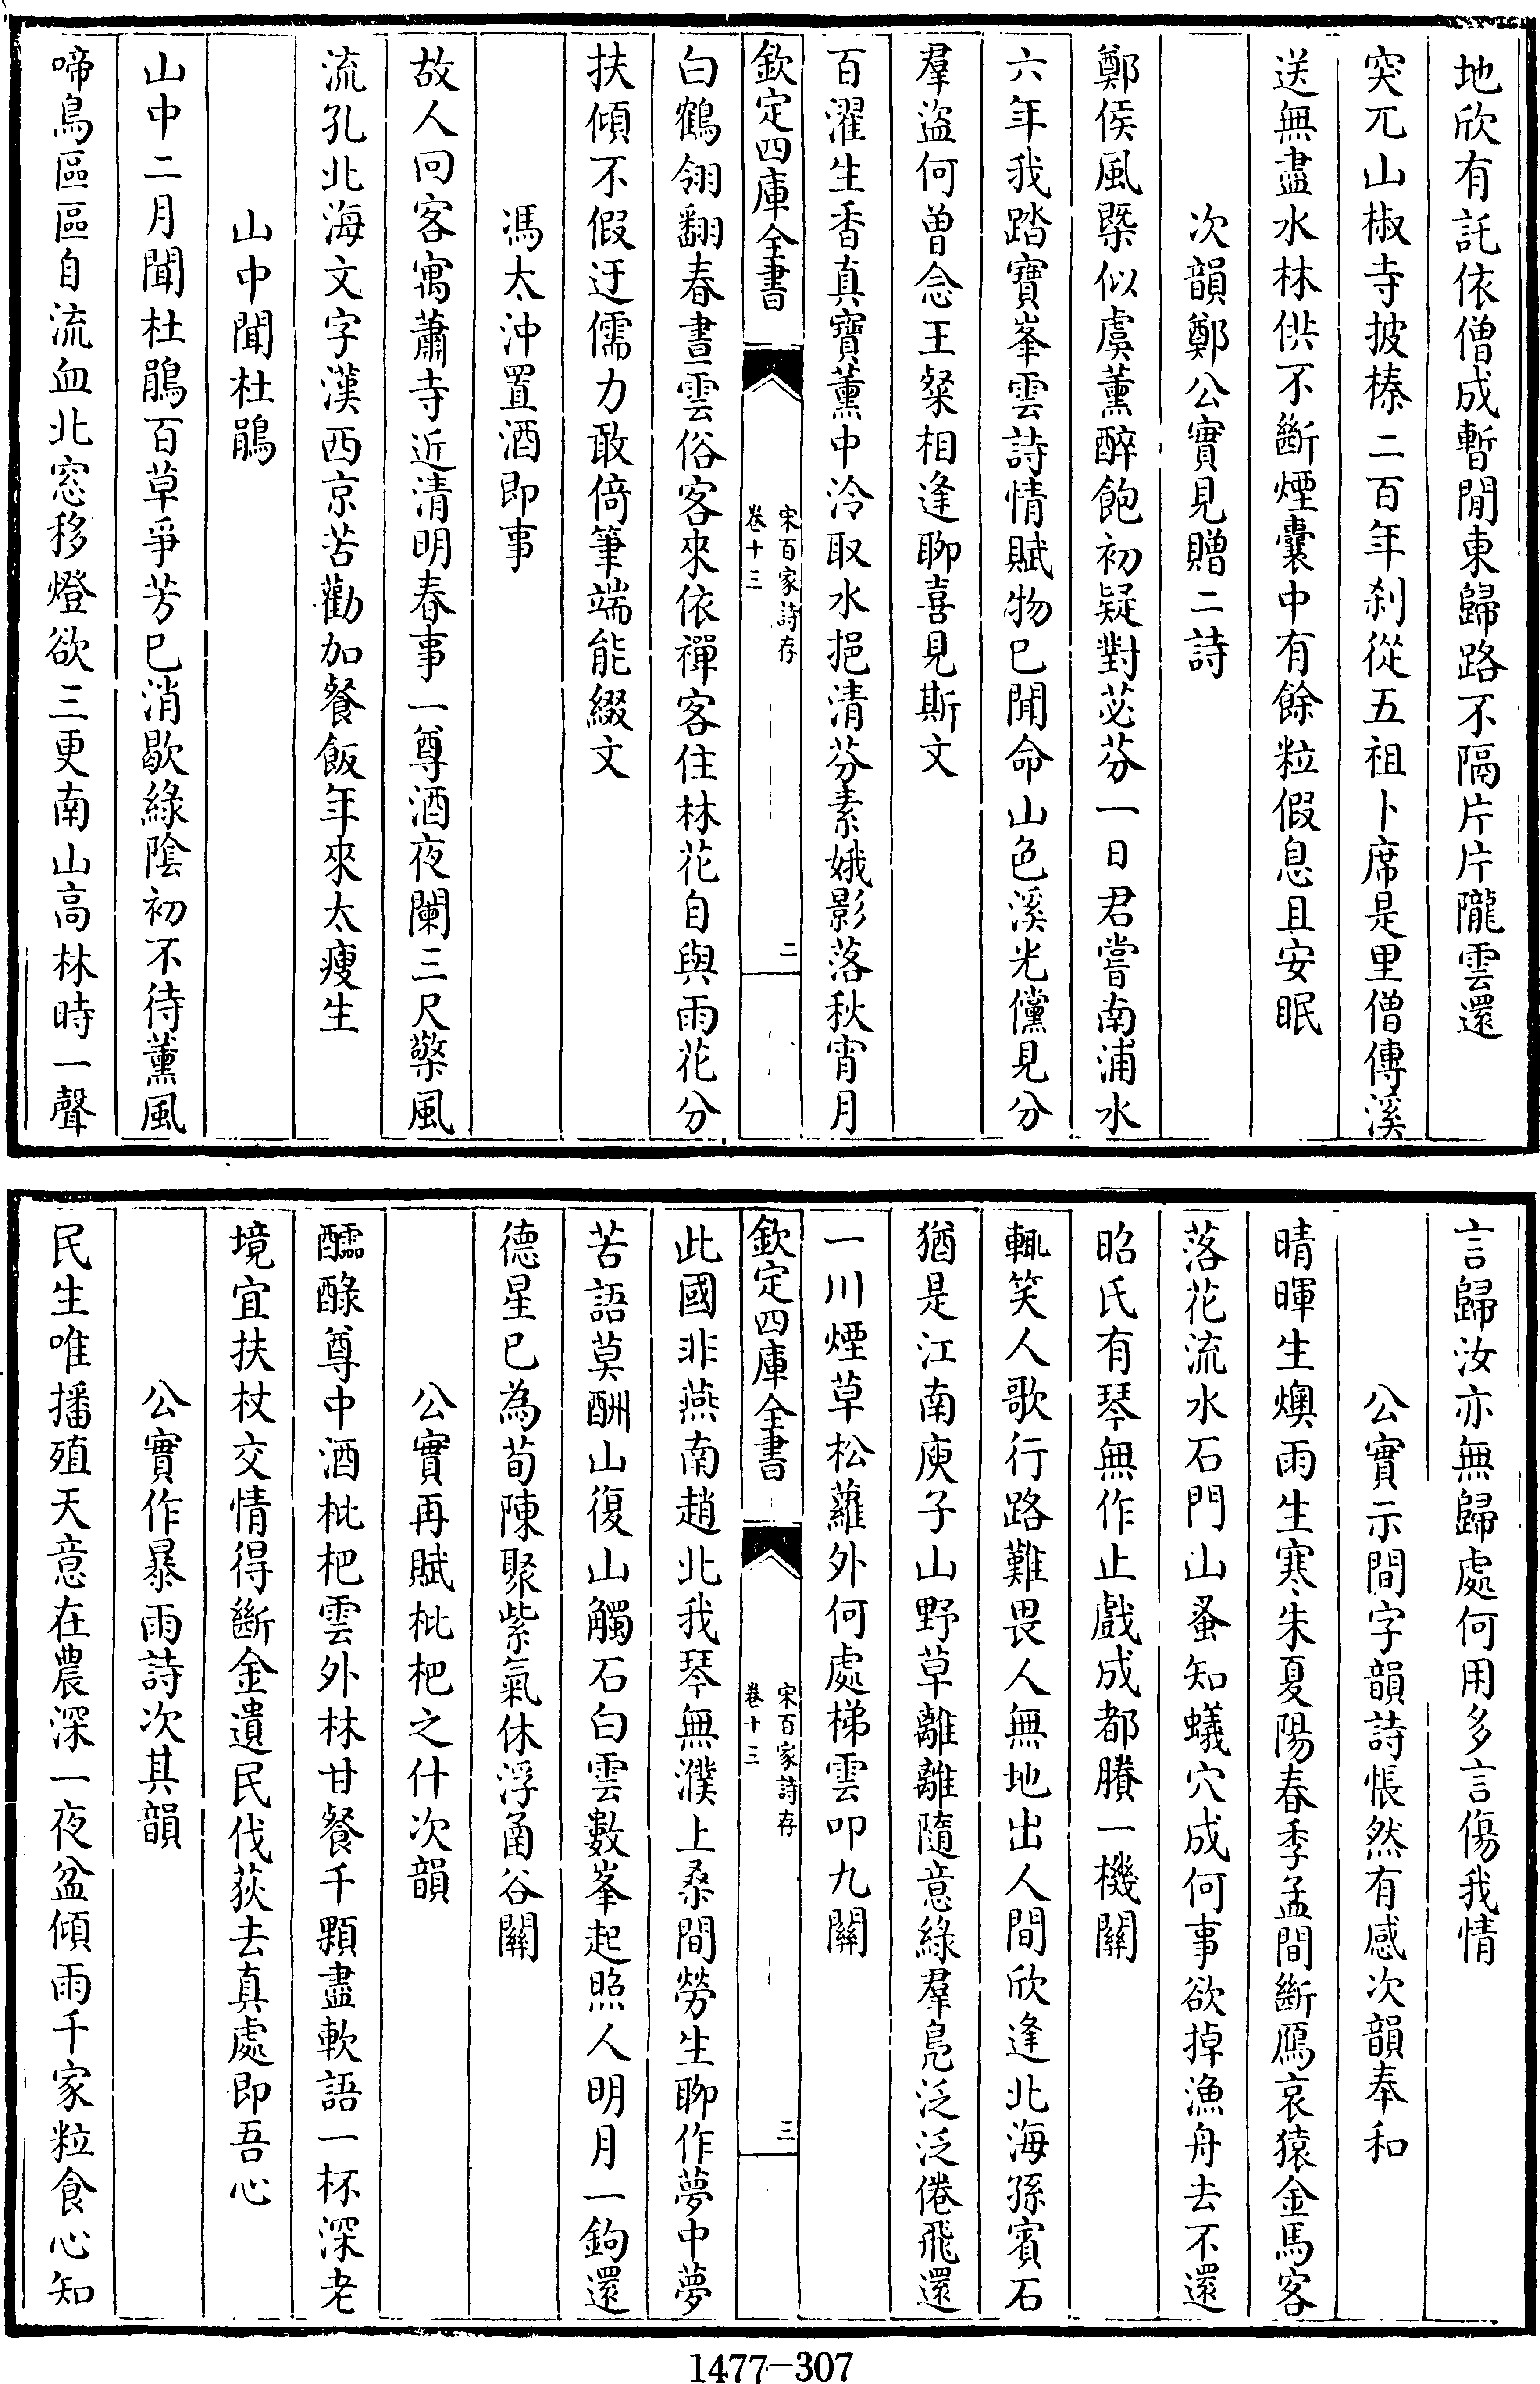 地欣有託依僧成暫閒東歸路不隔片片隴雲還
突兀山椒寺披榛二百年刹從五祖卜席是里僧傳溪
送無盡水林供不斷煙囊中有餘粒假息且安眠
次韻鄭公實見贈二詩
鄭侯風槩似虞薰醉飽初疑對苾芬一日君嘗南浦水
六年我踏寶峯雲詩情賦物已聞命山色溪光儻見分
羣盜何曾念王粲相逢聊喜見斯文
百濯生香真寶薰中泠取水挹清芬素娥影落秋宵月
欽定四庫全書
宋百家詩存
卷十三
二
白鶴翎翻春晝雲俗客來依禪客住林花自與雨花分
扶傾不假迂儒力敢倚筆端能綴文
馮太沖置酒即事
故人回客寓蕭寺近清明春事一尊酒夜闌三尺檠風
流孔北海文字漢西京苦勸加餐飯年來太瘦生
山中聞杜鵑
山中二月聞杜鵑百草爭芳已消歇綠陰初不待薰風
啼鳥區區自流血北窓移燈欲三更南山高林時一聲
言歸汝亦無歸處何用多言傷我情
公實示間字韻詩悵然有感次韻奉和
晴暉生燠雨生寒朱夏陽春季孟間斷鴈哀猿金馬客
落花流水石門山蚤知蟻穴成何事欲掉漁舟去不還
昭氏有琴無作止戲成都賸一機關
輒笑人歌行路難畏人無地出人間欣逢北海孫賓石
猶是江南庾子山野草離離隨意綠羣鳧泛泛倦飛還
一川煙草松蘿外何處梯雲叩九關
欽定四庫全書
宋百家詩存
卷十三
三
此國非燕南趙北我琴無濮上桑間勞生聊作夢中夢
苦語莫酬山復山觸石白雲數峯起照人明月一鉤還
德星已為荀陳聚紫氣休浮凾谷關
公實再賦枇杷之什次韻
醽醁尊中酒枇杷雲外林甘餐千顆盡軟語一杯深老
境宜扶杖交情得斷金遺民伐荻去真處即吾心
公實作暴雨詩次其韻
民生唯播殖天意在農深一夜盆傾雨千家粒食心知
1477-307